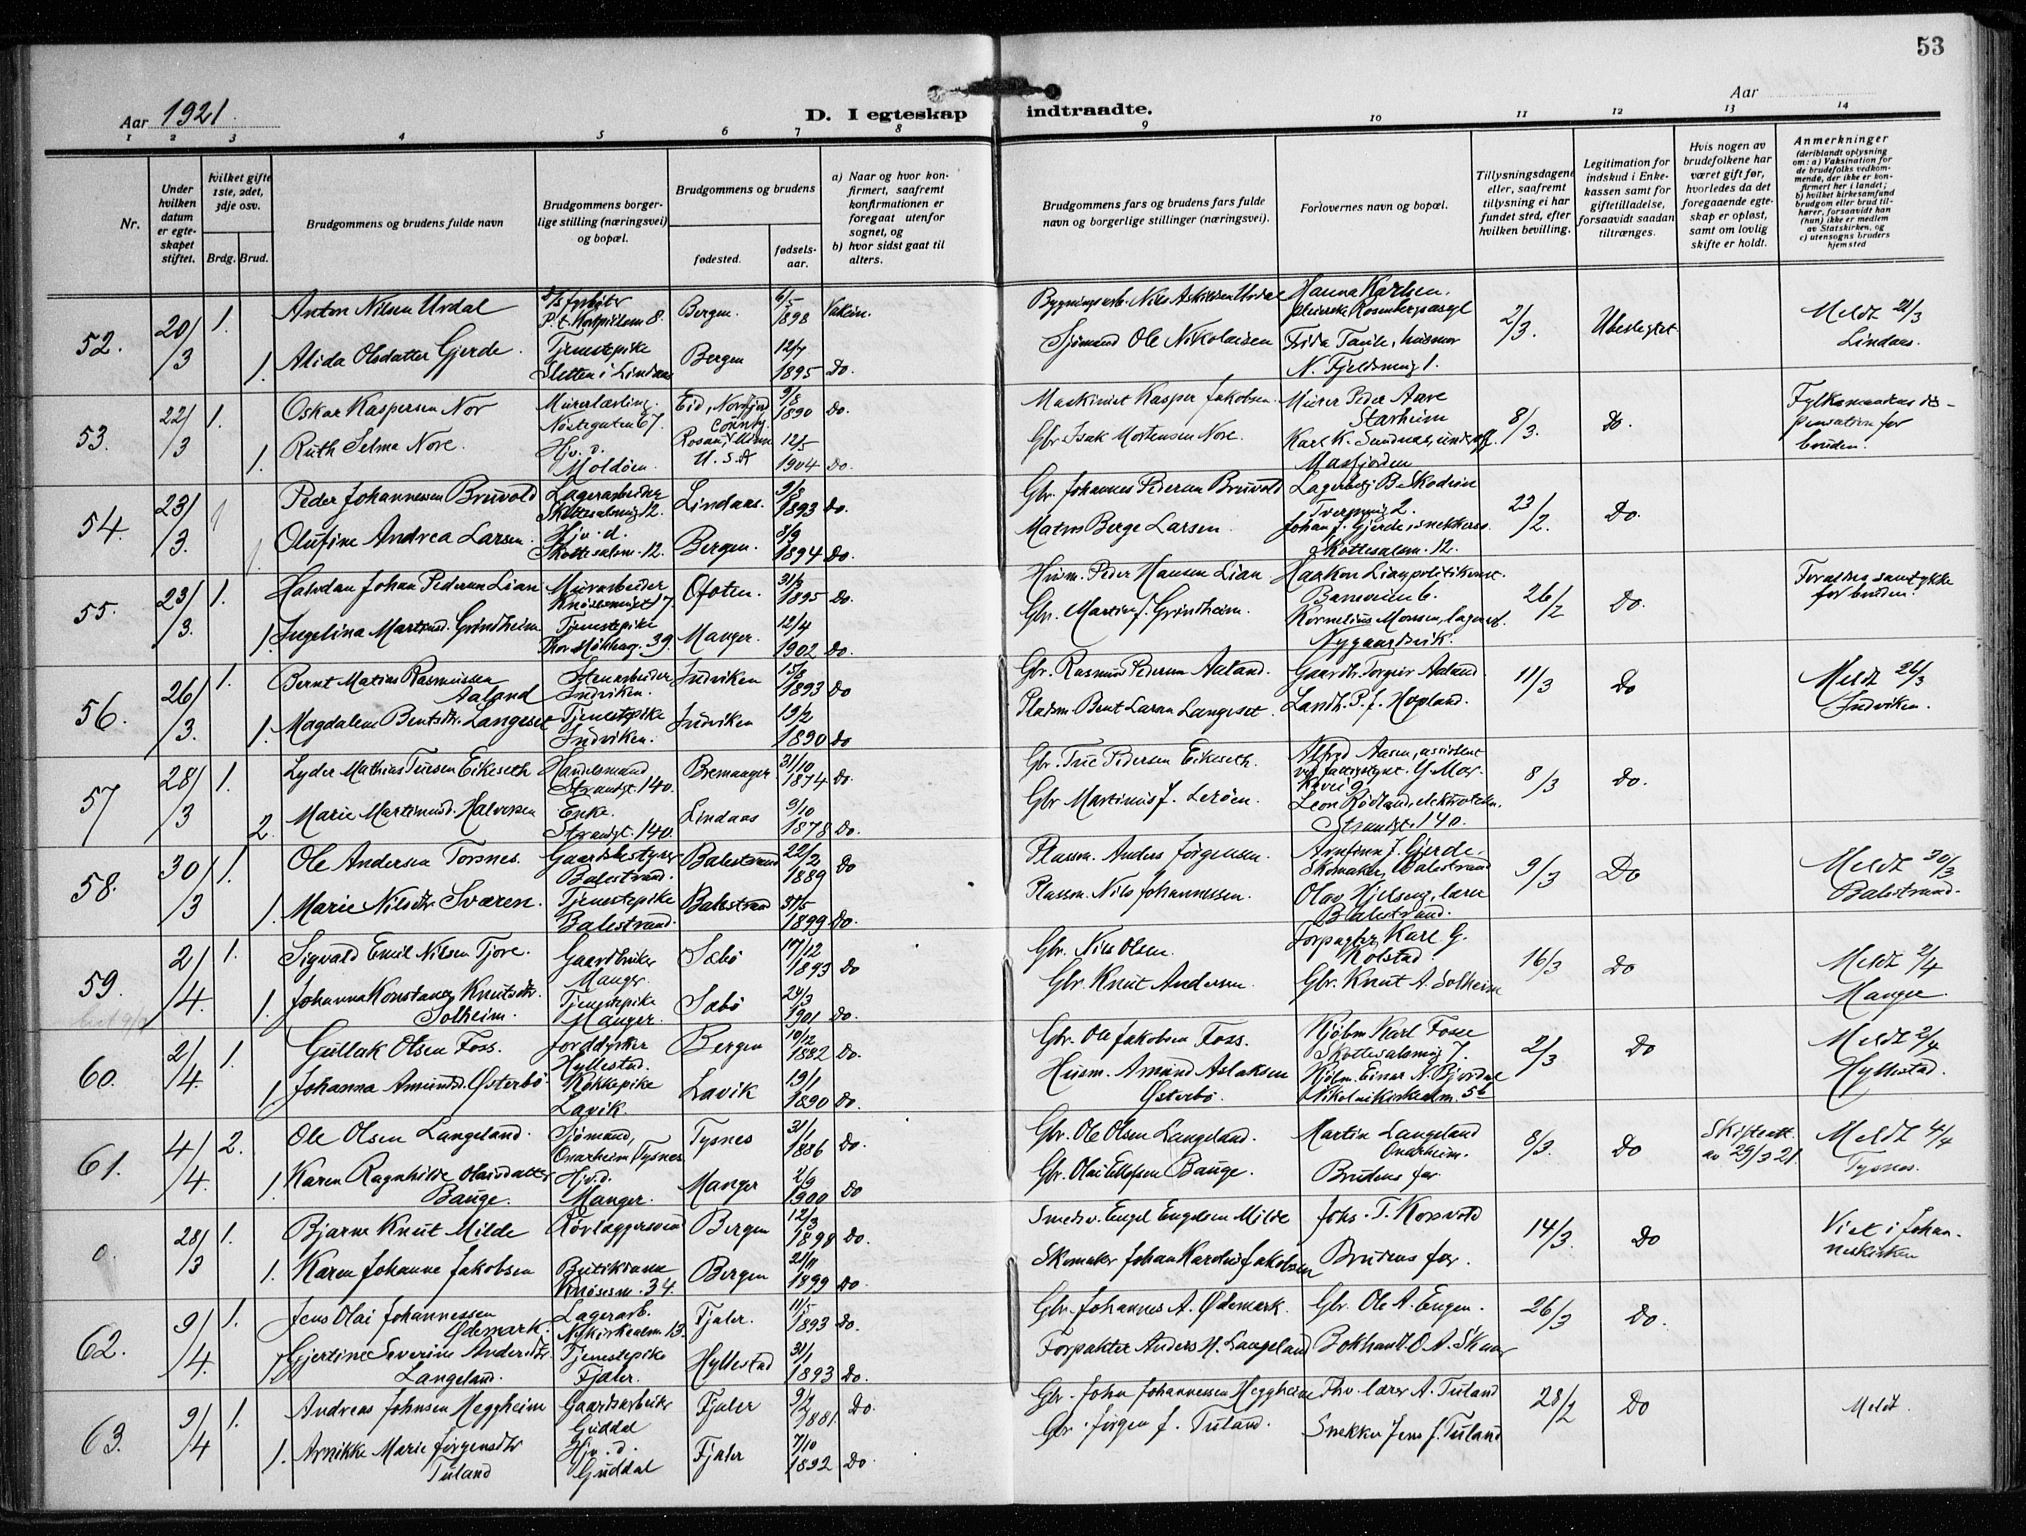 53
Aar 1921.
D. I egteskap indtraadte.
Aar
1 2 3 4 5 6 7 8 9 10 11 12 13 14
Nr.
Under hvilken datum er egteskapet stiftet.
Hvilket gifte 1ste, 2det, 3dje osv.
Brdg. Brud.
Brudgommens og brudens fulde navn
Brudgommens borgerlige stilling (næringsvei) og bopæl.
Brudgommens og brudens
fødested.
fødselsaar.
a) Naar og hvor konfirmert, saafremt konfirmationen er foregaat utenfor sognet, og
b) hvor sidst gaat til alters.
Brudgommens fars og brudens fars fulde navn og borgerlige stillinger (næringsvei).
Forlovernes navn og bopæl.
Tillysningsdagene eller, saafremt tillysning ei har fundet sted, efter hvilken bevilling.
Legitimation for indskud i Enkekassen samt for giftetilladelse, forsaavidt saadan tiltrænges.
Hvis nogen av brudefolkene har været gift før, hvorledes da det foregaaende egteskap er opløst, samt om lovlig skifte er holdt.
Anmerkninger
(deriblandt oplysning om: a) Vaksination for de brudefolks vedkommende, der ikke er konfirmert her i landet; b) hvilket kirkesamfund brudgom eller brud tilhører, forsaavidt han (hun) ikke er medlem av Statskirken, og c) utensogns bruders hjemsted
52. 20/3 1. Anton Nilsen Urdal P.t. 8. Bergen. 6/5 1898 Nils Askildsen Urdal Hanna Karlsen, 2/3. Ubeslegtet Meldt 21/3
1. Alida Olsdatter Gjerde. Tjenestepike Sletten i Lindaas Bergen 12/7 1895 Do. Sjömand Ole Nikolaisen N. Fjeldsmug 1. Lindaas.
53. 22/3 1. Oskar Kaspersen Nor Murerlærling. Nöstegaten 67. Eid, 9/8 1890 Do. Maskinist Kasper Jakobsen. Murer Peder Aare Starheim 8/3. Do. Fylkesmandens dispensation for bruden.
1. Ruth Selma Nore. Hjv. d. U.S.A 12/5 1904 Do. Gbr. Isak Mortensen Nore. Karl K. Masfjorden
54. 23/3. Peder Johannessen Bruvold Lagerarbeider Skottesalmg 12. Lindaas. 9/3 1893 Do. Gbr. Johannes Pedersen Bruvold B. Skodvin 2. 23/2. Do.
Olufine Andrea Larsen. Hjv. d. Skottesalm. 12. Bergen. 8/9 1894 Do. Matros Berge Larsen. Johan J. Gjerde, snekkers. Skottesalm. 12.
55. 23/3. 1. Halvdan Johan Pedersen Lian Murarbeider 17. Ofoten. 31/3 1895 Do. Husm. Peder Hansen Lian Haakon Lian, politikonst. 6. 26/2 Do. for bruden.
1. Ingelina Grindheim Tjenestepike 39. Manger. 12/4 1902 Do. Gbr. Martin J. Grindheim. Kornelius Monsen, Nygaardsvik.
56. 26/3. 1. Bernt Matias Rasmussen Aaland Stenarbeider Indviken. Indviken 15/3 1893 Do Gbr. Rasmus Pedersen Aaland. Gaardbr. Torgeir Aaland. 11/3 Do Meldt 26/3
1. Magdalene Bentsdtr. Langeset Tjenestepike Indviken. Indviken 13/2 1890 Do Pladsm. Bent Larsen Langeset. Landh. P. J. Hopland. Indviken.
57 28/3 1. Lyder Mathias Eikeseth Handelsmand Strandgt. 140. Bremanger 31/10 1874 Do. Gbr. Pedersen Eikeseth. Alfred Aasen, assistent 8/3 Do.
2. Marie Martinusd. Halvorsen Enke. Strandgt. 140. Lindaas 9/10 1878 Do. Gbr Martinus J. Leröen. Leon Rödland, Strandgt. 140.
58. 30/3 1. Ole Andersen Torsnes. Gaardsbestyrer Balestrand. Balestrand 22/2 1889 Do Plassm. Anders Jörgensen. Arnfinn J. Gjerde, Skomaker, Balestrand 9/3 Do Meldt 30/3
1. Marie Nilsdtr. Sværen. Tjenestepike Balestrand. Balestrand 1899 Do. Plassm. Nils Johannessen. Olav lærer Balestrand. Balestrand.
59. 2/4. 1. Sigvald Emil Nilsen Tjore. Gaardbruker Manger. Sæbö 17/12 1893 Do Gbr. Nils Olsen. Forpagter Karl G. Kolstad 16/3 Do Meldt 2/4
1. Johanna Konstanse Knutsdtr. Solheim. Tjenestepike Manger. Sæbö 24/3 1901 Do. Gbr. Knut Andersen. Gbr. Knut A. Solheim Manger.
60. 2/4. 1. Gullak Olsen Foss. Jorddyrker Hyllestad. Bergen 10/12 1882 Do. Gbr. Ole Jakobsen Foss. Kjöbm. Karl Fosse Skottesalmg 7. 2/3 Do Meldt 2/4
1. Johanna Amundsd. Østerbö. Kokkepike Lavik. Lavik 13/1 1890 Do. Husm. Amund Aslaksen Østerbö. Kjöbm. Einar N. Bjordal Nikolaikirkealm. 5b Hyllestad.
61. 4/4. 2. Ole Olsen Langeland. Sjömand, Onarheim, Tysnes Tysnes 31/1 1886 Do. Gbr. Ole Olsen Langeland. Martin Langeland Onarheim. 8/3. Do Skifteatt. av 29/3 21. Meldt 4/4
1. Karen Ragnhilde Olaisdatter Bauge. Hjv.d. Manger. Manger 2/9 1900 Do Gbr. Olai Ellefsen Bauge. Brudens far Tysnes.
0. 28/3 1. Bjarne Knut Milde Rörlæggersvend Bergen 12/3 1898 Do. Smedsv. Engel Engelsen Milde Johs. T. Korsvold 14/3. Do Viet i Johanneskirken
1. Karen Johanne Jakobsen Butikdame 34. Bergen 21/11 1899 Do. Skomaker Johan Karolius Jakobsen Brudens far.
62. 9/4. 1. Jens Olai Johannessen Ødemark. Lagerarb. 13. Fjaler. 11/5 1893 Do. Gbr. Johannes A. Ødemark. Gbr. Ole A. Engen. 26/3 Do.
1. Gjertine Severine Andersdtr. Langeland. Tjenestepike Fjaler. Hyllestad 31/1 1893 Do. Forpakter Anders M. Langeland Bokhandl. O. A. Skaar
63. 9/4 1. Andreas Johnsen Heggheim Gaardsarbeider Guddal Fjaler 9/2 1881. Do. Gbr. John Johannessen Heggheim Fhv. lærer A. Tuland 28/2 Do Meldt.
1. Annikke Marie Jörgensdtr Tuland Hjv. d. Guddal Fjaler 7/10 1892 Do. Gbr. Jörgen J. Tuland. Snekker Jens J. Tuland